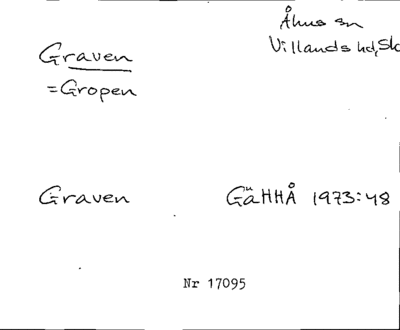 Åhus sn
Graven
Villands hd, Sk
=Gropen
Graven GÄHHÅ 1973:48
Nr 17095